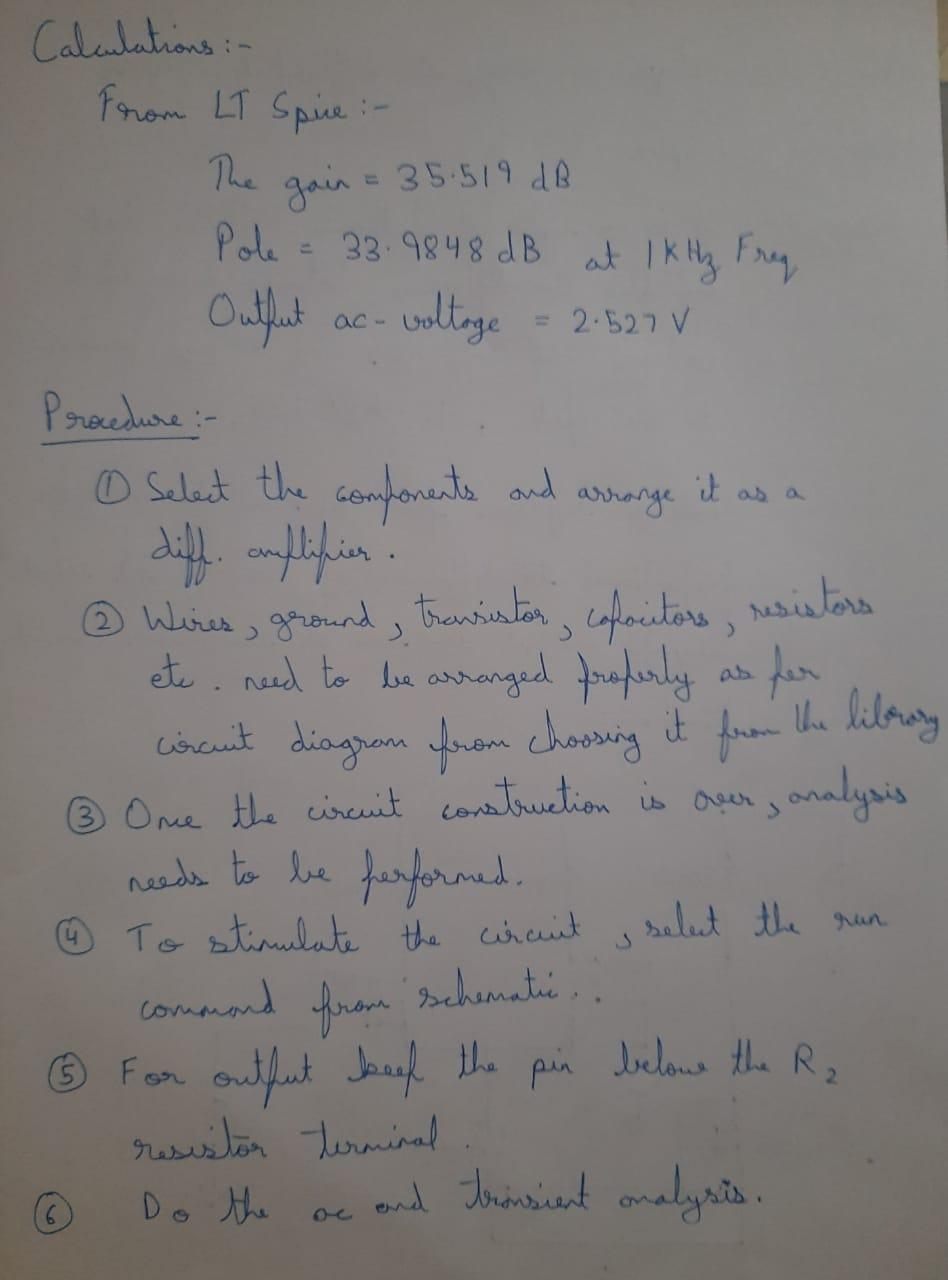 Calculations :-
From LT Spice :-
The gain = 35.519 dB
Pole = 33.9848 dB at 1 KHz Freq
Output ac - voltage = 2.527 V
Procedure :-
① Select the components and arrange it as a
diff. amplifier .
② Wires , ground , transistor , capacitors , resistors
etc . need to be arranged properly as per
circuit diagram from choosing it from the library
③ Once the circuit construction is over , analysis
needs to be performed.
④ To stimulate the circuit , select the run
command from schematic . .
⑤ For output keep the pin below the R2
resistor terminal .
⑥ Do the ac and transient analysis .